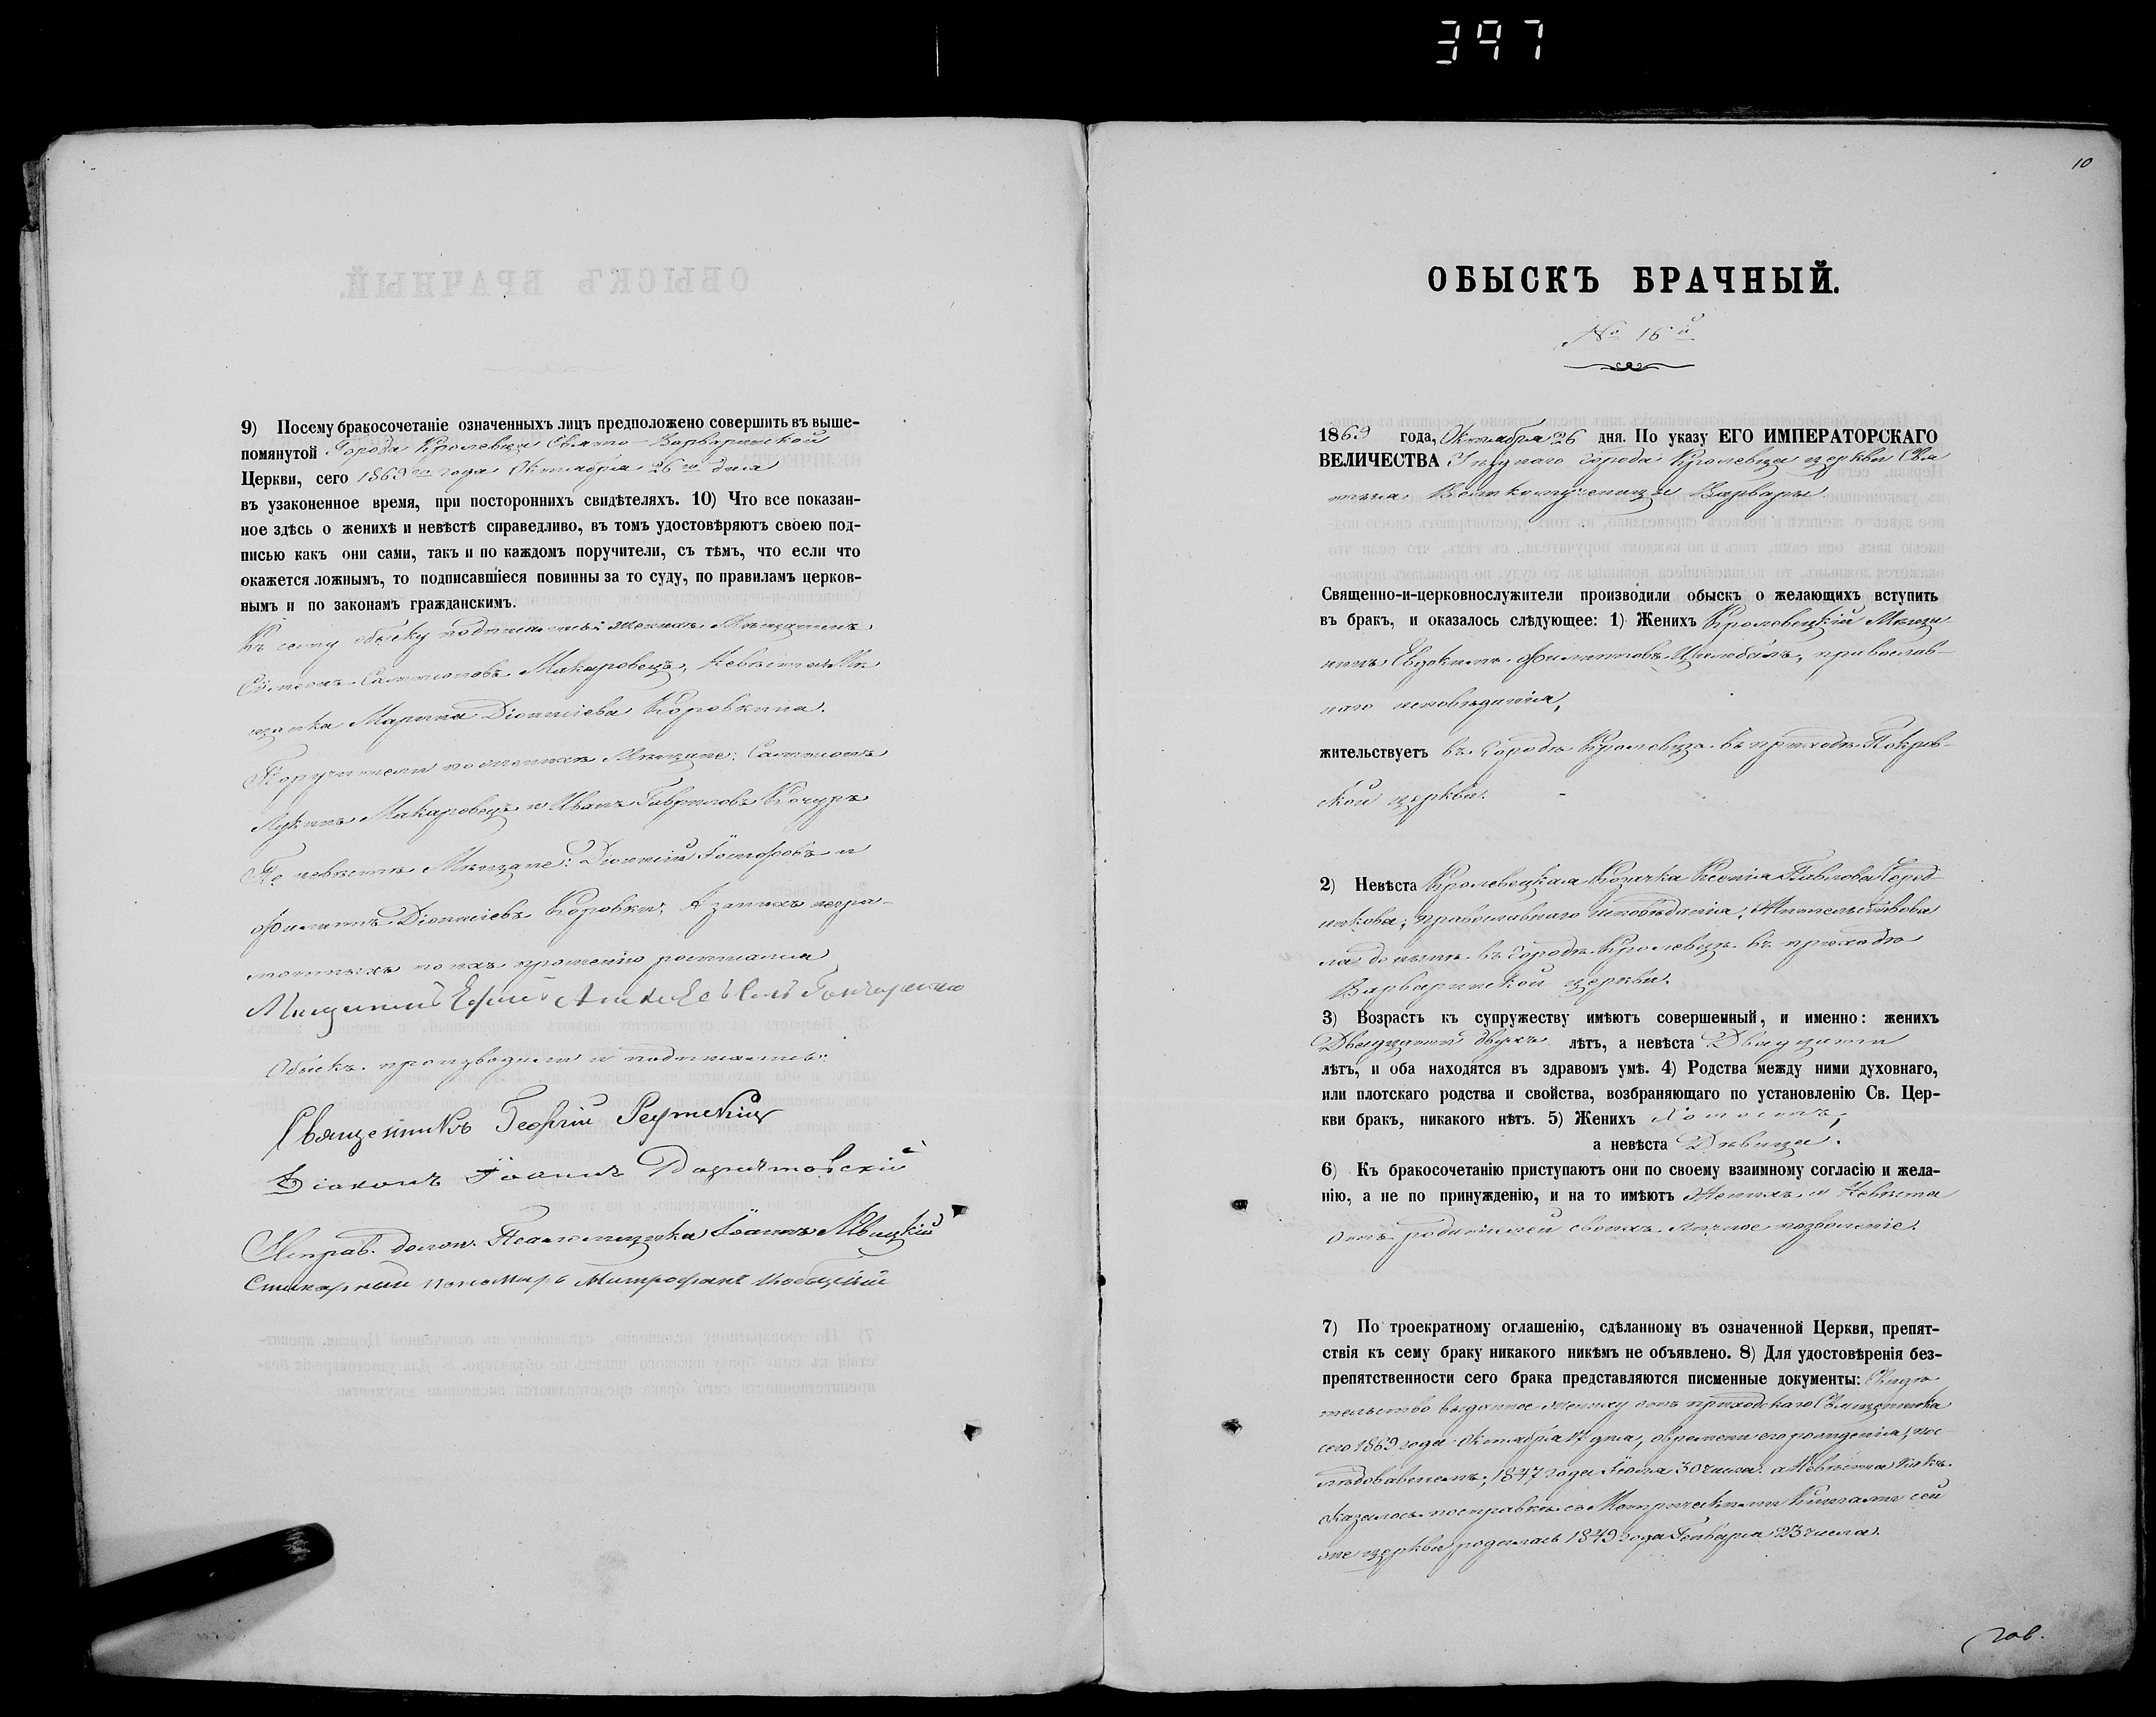 397
9) Посему бракосочетаніе означенныхъ лицъ предположено совершить въ выше-
помянутой Города Кролевца Свято-Варваринской
Церкви, сего 1869го года Октября 26го дня
въ узаконенное время, при постороннихъ свидѣтеляхъ. 10) Что все показан-
ное здѣсь о женихѣ и невѣстѣ справедливо, въ томъ удостовѣряютъ своею под-
писью какъ они сами, такъ и по каждомъ поручители, съ тѣмъ, что если что
окажется ложнымъ, то подписавшіеся повинны за то суду, по правиламъ церков-
нымъ и по законамъ гражданскимъ.
Къ сему обыску подписались: женихъ Мѣщанинъ
Симеонъ Сампсоновъ Макаровецъ, Невѣста Мѣ
щанка Марина Діонисіева Коровкина.
Поручители по женихѣ Мѣщане: Сампсонъ
Лукинъ Макаровецъ и Иванъ Гавриловъ Кочуръ
По невѣстѣ Мѣщане: Діонисій и
Филиппъ Діонисіевъ Коровки; А за нихъ негра-
мотныхъ по ихъ прошенію росписался
Мищанинъ Ефимъ
Обыскъ производили и подписались:
Священникъ Георгій
Діаконъ Іоаннъ
Исправ. долж. Псаломщика Іоаннъ
Стихарный пономарь Митрофанъ
10
ОБЫСКЪ БРАЧНЫЙ.
№ 16й
1869 года, Октября 26 дня. По указу ЕГО ИМПЕРАТОРСКАГО
ВЕЛИЧЕСТВА города Кролевца церкви Свя
тыя Великомученицы Варвары
Священно-и-церковнослужители производили обыскъ о желающихъ вступить
въ бракъ, и оказалось слѣдующее: 1) Женихъ Кролевецкій Мѣща
нинъ Евдокимъ Филипповъ православ-
наго исповѣданія,
жительствуетъ въ городѣ Кролевцѣ въ приходѣ Покров-
ской церкви.
2) Невѣста Кролевецкая Козачка Ксенія Павлова Черед
никова, православнаго исповѣданія, Жительствова
ла донынѣ въ городѣ Кролевцѣ въ приходѣ
Варваринской церкви.
3) Возрастъ къ супружеству имѣютъ совершенный, и именно: женихъ
Двадцати двухъ лѣтъ, а невѣста Двадцати
лѣтъ, и оба находятся въ здравомъ умѣ. 4) Родства между ними духовнаго,
или плотскаго родства и свойства, возбраняющаго по установленію Св. Цер-
кви бракъ, никакого нѣтъ. 5) Женихъ Холостъ,
а невѣста Дѣвица.
6) Къ бракосочетанію приступаютъ они по своему взаимному согласію и жела-
нію, а не по принужденію, и на то имѣютъ Женихъ и Невѣста
отъ родителей своихъ личное позволеніе.
7) По троекратному оглашенію, сдѣланному въ означенной Церкви, препят-
ствія къ сему браку никакого никѣмъ не объявлено. 8) Для удостовѣренія без-
препятственности сего брака представляются писменные документы: Свидѣ
тельство выданное жениху отъ приходскаго Священника
сего 1869 года Октября 17 дня, о времени его рожденія, пос-
лѣдовавшемъ, 1847 года Іюля 30 числа. а Невѣста какъ
оказалось по справкѣ съ Метрическими Книгами сей
же церкви родилась 1849 года Генваря 23 числа.